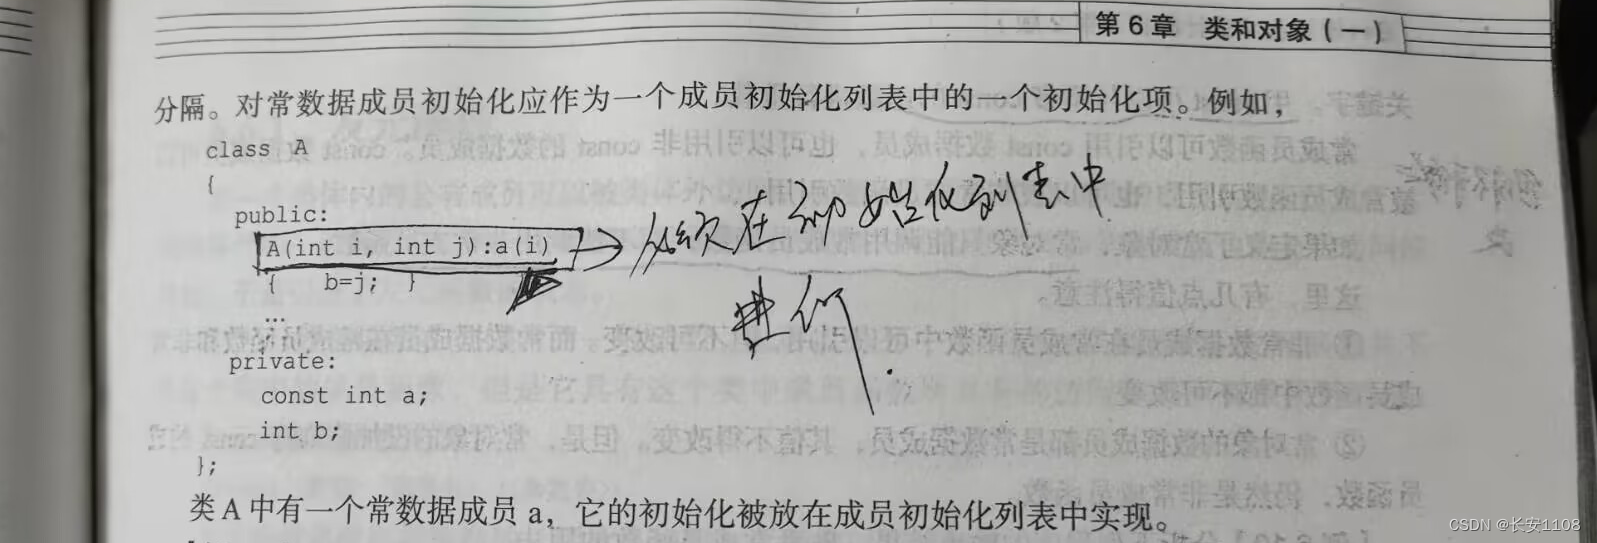 第6章 类和对象(一)
分隔。对常数据成员初始化应作为一个成员初始化列表中的一个初始化项。例如，
class A
{
public:
A(int i, int j):a(i)
{ b=j; }
…
private:
const int a;
int b;
};
必须在初始化列表中
进行.
类A中有一个常数据成员a，它的初始化被放在成员初始化列表中实现。
CSDN @长安1108